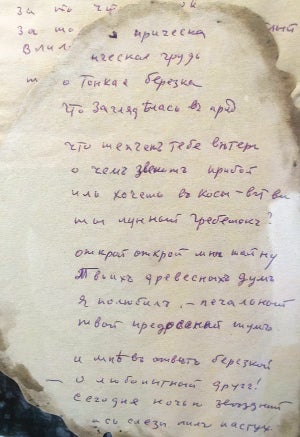 за то что
за то прическа ый
Влил
ическая грудь
о Тонкая березка
Что заглядѣлась въ пруд
что шепчет тебе вѣтеръ
о чемъ звенитъ прибой
иль хочешь въ косы-вѣтви
ты лунный гребешокъ?
открой открой мнѣ тайну
Твоихъ древесныхъ думъ
Я полюбилъ, – печальный
твой предосений шумъ
и мнѣ въ отвѣтъ березкой
– О любопытный другъ!
Сегодня ночью звездной
– сь слезы лилъ пастух